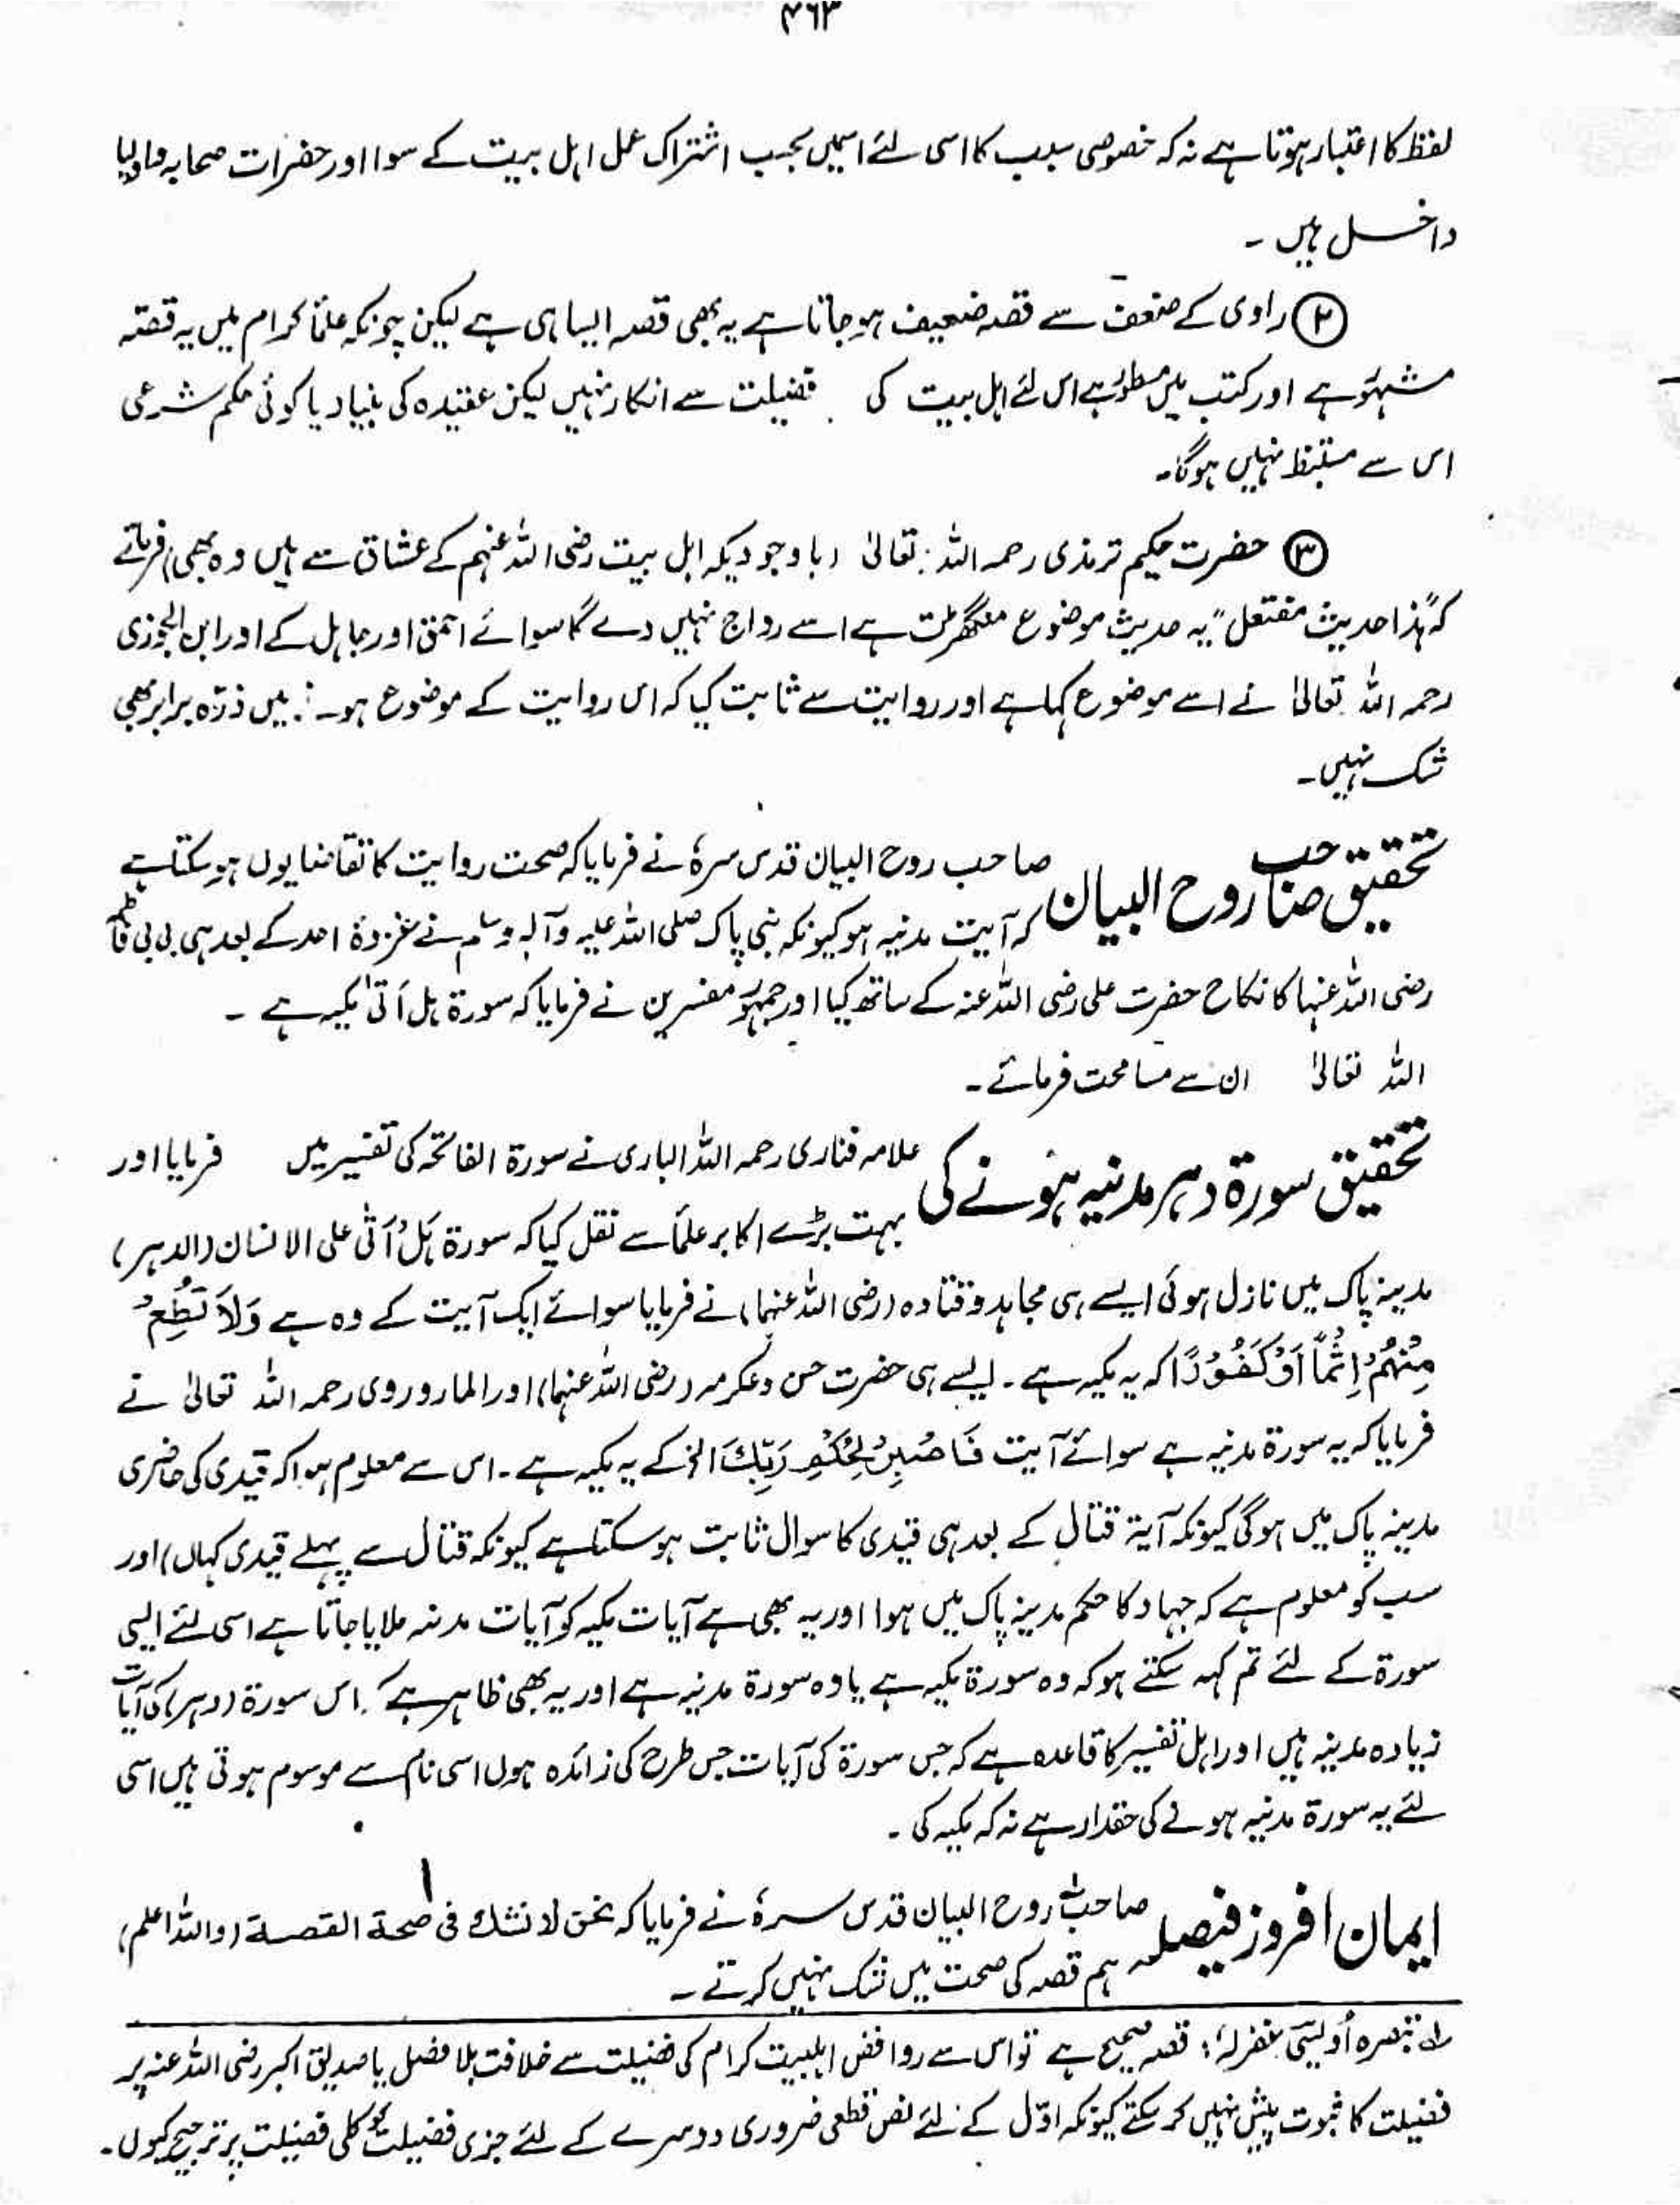 ۴۶۳
لفظ کا اعتبار ہوتا ہے نہ کہ خصوصی سبب کا اسی لئے اسمیں بحسب اشتراک عمل اہل بیت کے سوا اور حضرات صحابہ و اولیا
داخل ہیں۔
۲ راوی کے ضعف سے قصہ ضعیف ہو جاتا ہے یہ بھی قصہ ایسا ہی ہے لیکن چونکہ علماً کرام میں یہ قصّہ
مشہور ہے اور کتب میں مسطور ہے اس لئے اہل بیت کی فضیلت سے انکار نہیں لیکن عقیدہ کی بنیاد یا کوئی حکم شرعی
اس سے مستنبط نہیں ہوگا۔
۳ حضرت حکیم ترمذی رحمہ اللہ تعالیٰ (باوجودیکہ اہل بیت رضی اللہ عنہم کے عشاق سے ہیں وہ بھی) فرماتے
کہ "ہٰذا حدیث مفتعل" یہ حدیث موضوع منگھڑت ہے اسے رواج نہیں دے گا سوائے احمق اور جاہل کے اور ابن الجوزی
رحمہ اللہ تعالیٰ نے اسے موضوع کہا ہے اور روایت سے ثابت کیا کہ اس روایت کے موضوع ہو۔ میں ذرّہ برابر بھی
شک نہیں۔
تحقیق صاحب روح البیان صاحب روح البیان قدس سرہٗ نے فرمایا کہ صحت روایت کا تقاضا یوں ہو سکتا ہے
کہ آیت مدنیہ ہو کیونکہ نبی پاک صلی اللہ علیہ وآلہٖ وسلم نے غزوۂ احد کے بعد ہی بی بی فاطمہ
رضی اللہ عنہا کا نکاح حضرت علی رضی اللہ عنہ کے ساتھ کیا اور جمہور مفسرین نے فرمایا کہ سورۃ ہل اَتٰی مکیہ ہے ۔
اللہ تعالیٰ ان سے مسامحت فرمائے۔
تحقیق سورۃ دہر مدنیہ ہونے کی علامہ فناری رحمہ اللہ الباری نے سورۃ الفاتحہ کی تفسیر میں فرمایا اور
بہت بڑے اکابر علماً سے نقل کیا کہ سورۃ ہَلْ اَتٰی علی الانسان (الدہر)
مدینہ پاک میں نازل ہوئی ایسے ہی مجاہد و قتادہ (رضی اللہ عنہما) نے فرمایا سوائے ایک آیت کے وہ ہے وَلَا تُطِعْ
مِنْهُمْ اِثْمًا اَوْ كَفُوْرًا کہ یہ مکیہ ہے۔ ایسے ہی حضرت حسن و عکرمہ (رضی اللہ عنہما) اور الماروروی رحمہ اللہ تعالیٰ نے
فرمایا کہ یہ سورۃ مدنیہ ہے سوائے آیت فَاصْبِرْ لِحُكْمِ رَبِّكَ الخ کے یہ مکیہ ہے۔ اس سے معلوم ہوا کہ قیدی کی حاضری
مدینہ پاک میں ہوگی کیونکہ آیۃ قتال کے بعد ہی قیدی کا سوال ثابت ہو سکتا ہے کیونکہ قتال سے پہلے قیدی کہاں) اور
سب کو معلوم ہے کہ جہاد کا حکم مدینہ پاک میں ہوا اور یہ بھی ہے آیات مکیہ کو آیات مدنیہ ملایا جاتا ہے اسی لئے ایسی
سورۃ کے لئے تم کہہ سکتے ہو کہ وہ سورۃ مکیہ ہے یا وہ سورۃ مدنیہ ہے اور یہ بھی ظاہر ہے کہ اس سورۃ (دہر) کی آیات
زیادہ مدنیہ ہیں اور اہل تفسیر کا قاعدہ ہے کہ جس سورۃ کی آیات جس طرح کی زائدہ ہوں اسی نام سے موسوم ہوتی ہیں اسی
لئے یہ سورۃ مدنیہ ہونے کی حقدار ہے نہ کہ مکیہ کی۔
ایمان افروز فیصلہ صاحب روح البیان قدس سرہٗ نے فرمایا کہ نحن لا نشك فی صحة القصة (واللہ اعلم)
ہم قصہ کی صحت میں شک نہیں کرتے۔
لہ تبصرہ اُویسی غفرلہٗ؛ قصہ صحیح ہے تو اس سے روافض اہلبیت کرام کی فضیلت سے خلافت بلا فصل یا صدیق اکبر رضی اللہ عنہ پر
فضیلت کا ثبوت پیش نہیں کر سکتے کیونکہ اوّل کے لئے نص قطعی ضروری دوسرے کے لئے جزی فضیلت کو کلی فضیلت پر ترجیح کیوں۔